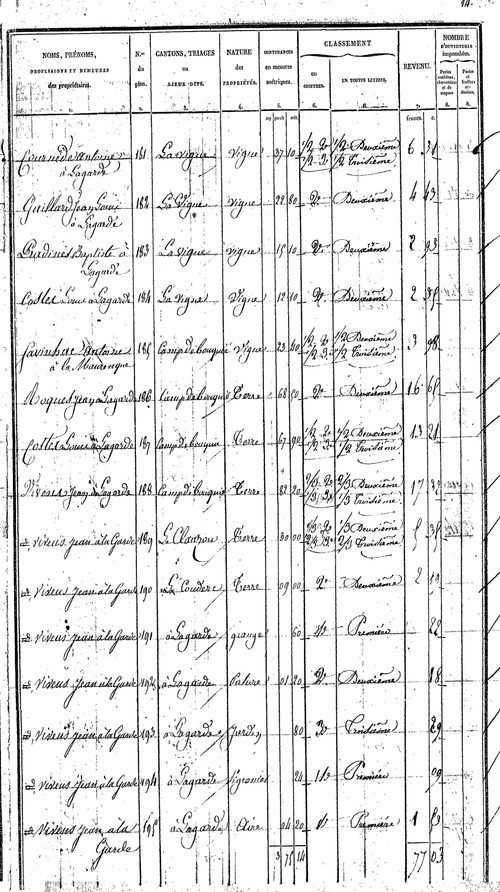 14.
NOMS, PRÉNOMS, PROFESSIONS ET DEMEURES des propriétaires. N.os du plan. CANTONS, TRIAGES ou LIEUX DITS. NATURE des PROPRIÉTÉS. CONTENANCES en mesures métriques. CLASSEMENT en CHIFFRES. EN TOUTES LETTRES. REVENU. NOMBRE D'OUVERTURES imposables.
1. 2. 3. 4. 5. 6. 7. 8. 8.
francs. c.
Antoine 181 La vigne vigne 37 10 1/2 2e 1/2 Deuxième 6 31
à Lagarde 1/2 Troisième
Gaillard Jean Louis 182 La Vigne vigne 22 80 2e Deuxième 4 43
à Lagarde
Baptiste à 183 La vigne vigne 15 10 2e Deuxième 2 93
Lagarde
Costes Louis à Lagarde 184 La vigne Vigne 12 10 2e Deuxième 2 35
Antoine 185 Camp de bouquie Vigne 23 40 1/2 2e 1/2 Deuxième 3 98
à la 1/2 3e 1/2 Troisième
Roques Jean à Lagarde 186 Camp de bouquie Terre 68 50 2e Deuxième 16 65
Costes Louis à Lagarde 187 Camp de bouquie Terre 67 90 1/2 2e 1/2 Deuxième 13 21
1/2 3e 1/2 Troisième
Vivens Jean à Lagarde 188 Camp de bouquie Terre 82 20 2/3 2e 2/3 Deuxième 17
1/3 3e 1/3 Troisième
Vivens Jean à la Garde 189 Le Terre 30 00 1/3 2e 1/3 Deuxième 5 35
2/3 3e 2/3 Troisième
Vivens Jean à la Garde 190 Le Couderc Terre 09 00 2e Deuxième 2 19
Vivens Jean à la Garde 191 à Lagarde grange 60 1re Première 22
Vivens Jean à la Garde 192 à Lagarde Pature 01 20 2e Deuxième 18
Vivens Jean à la Garde 193 à Lagarde Jardin 80 3e Troisième 29
Vivens Jean à la Garde 194 à Lagarde Pigeonier 24 1re Première 09
Vivens Jean à la 195 à Lagarde Aire 04 20 1re Première 1 53
Garde
3 75 14 77 03